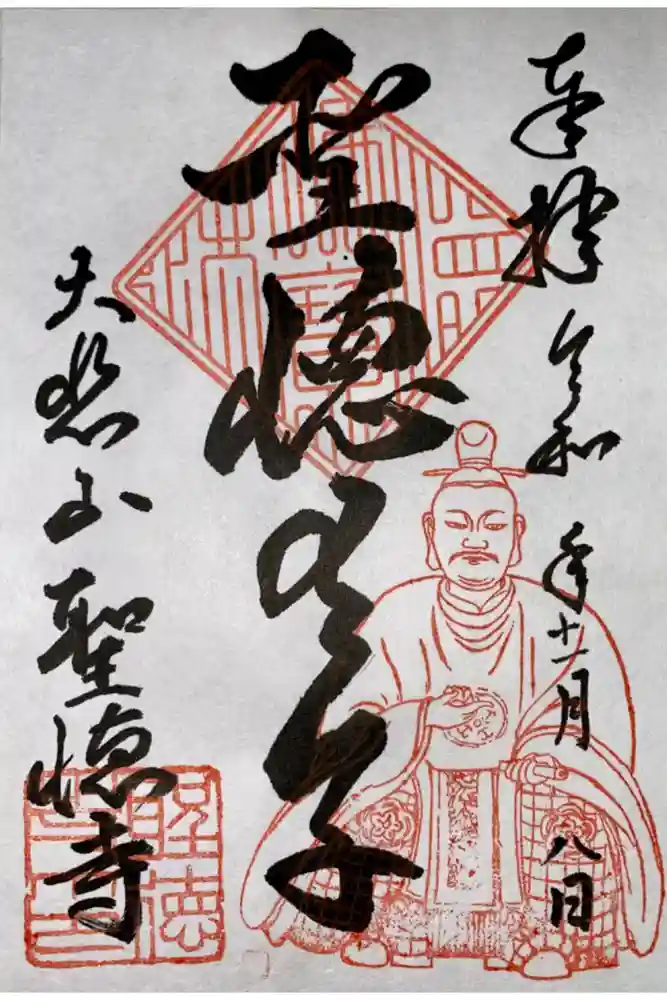 奉拝 令和 年十一月 八日
聖徳太子
大悲山聖徳寺
聖徳